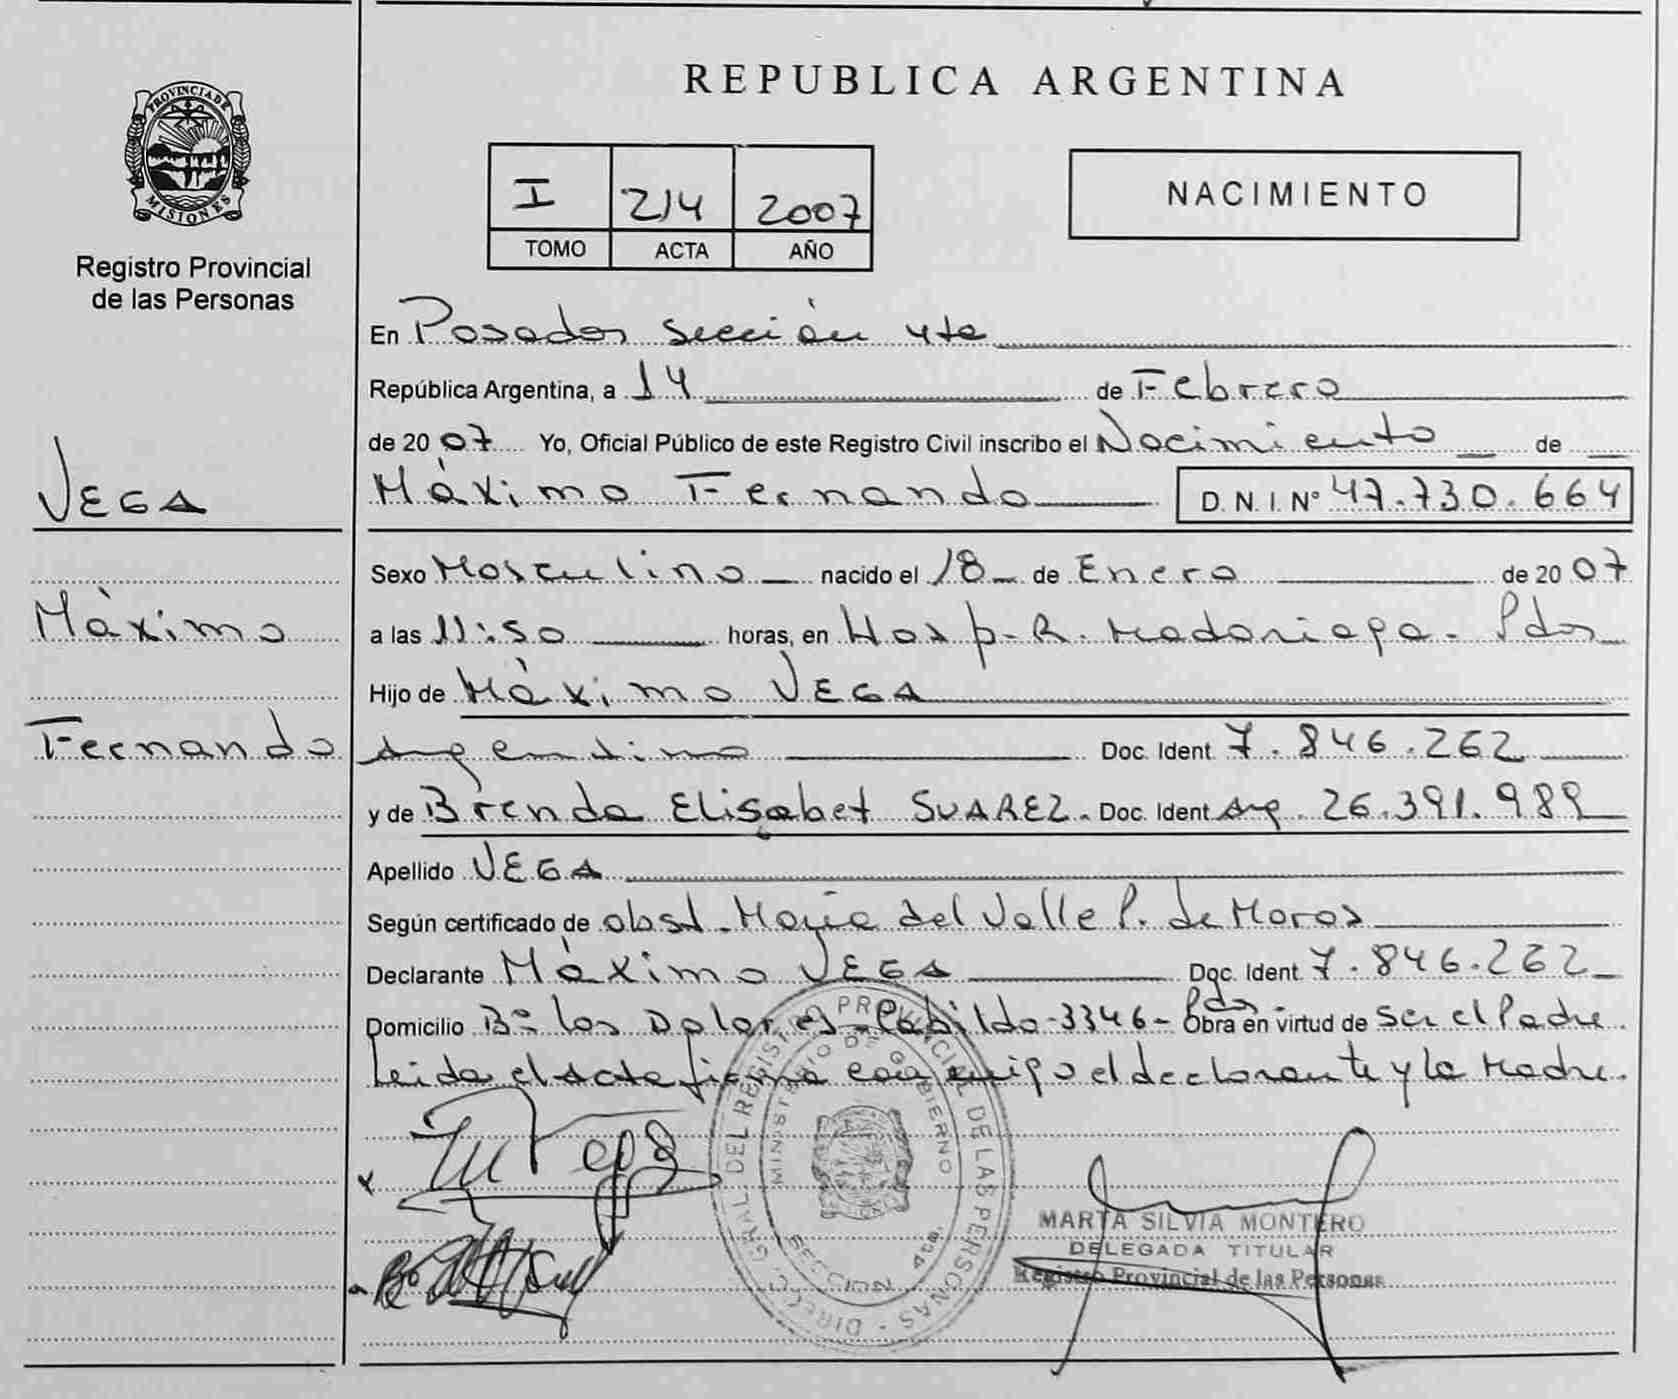 PROVINCIA DE
MISIONES
Registro Provincial
de las Personas
VEGA
Máximo
Fernando
REPUBLICA ARGENTINA
I 214 2007
TOMO ACTA AÑO
NACIMIENTO
En Posadas sección 4ta
República Argentina, a 14 de Febrero
de 2007 Yo, Oficial Público de este Registro Civil inscribo el Nacimiento de
Máximo Fernando D.N.I. Nº 47.730.664
Sexo Masculino nacido el 18 de Enero de 2007
a las 11:50 horas, en Hosp. R. Madariaga - Pdas
Hijo de Máximo VEGA
Argentino Doc. Ident 7.846.262
y de Brenda Elisabet SUAREZ. Doc. Ident Arg. 26.391.989
Apellido VEGA
Según certificado de obst. María del Valle P. de Moras
Declarante Máximo VEGA Doc. Ident 7.846.262
Domicilio Bº los Dolores - Cabildo - 3346 - Pdas - Obra en virtud de ser el Padre
Leida el acta firma conmigo el declarante y la Madre.
DIRECC. GRAL. DEL REGISTRO PROVINCIAL DE LAS PERSONAS
MINISTERIO DE GOBIERNO
SECCION 4ta.
MARTA SILVIA MONTERO
DELEGADA TITULAR
Registro Provincial de las Personas